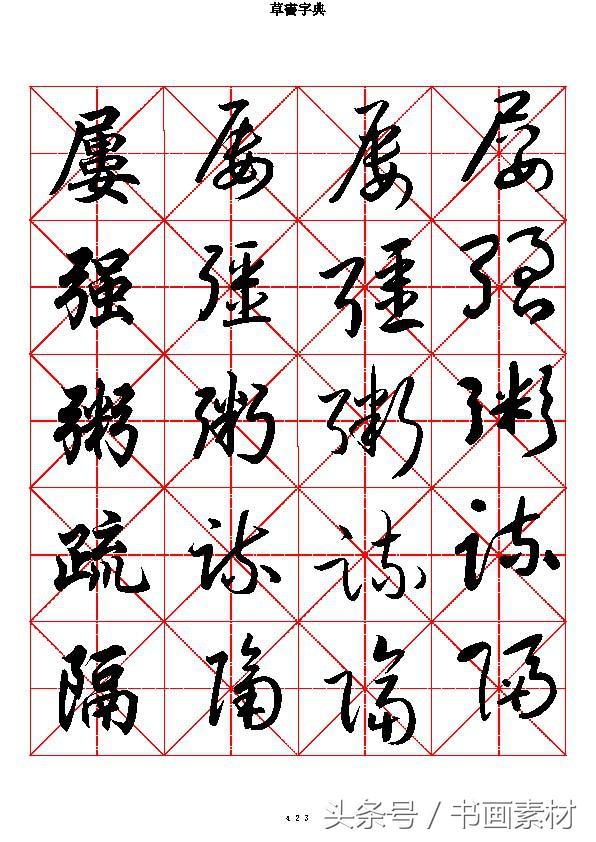 草書字典
屢 屢 屢 屢
强 疆 疆 强
粥 粥 粥 粥
疏 疏 疏 疏
隔 隔 隔 隔
423
头条号 / 书画素材